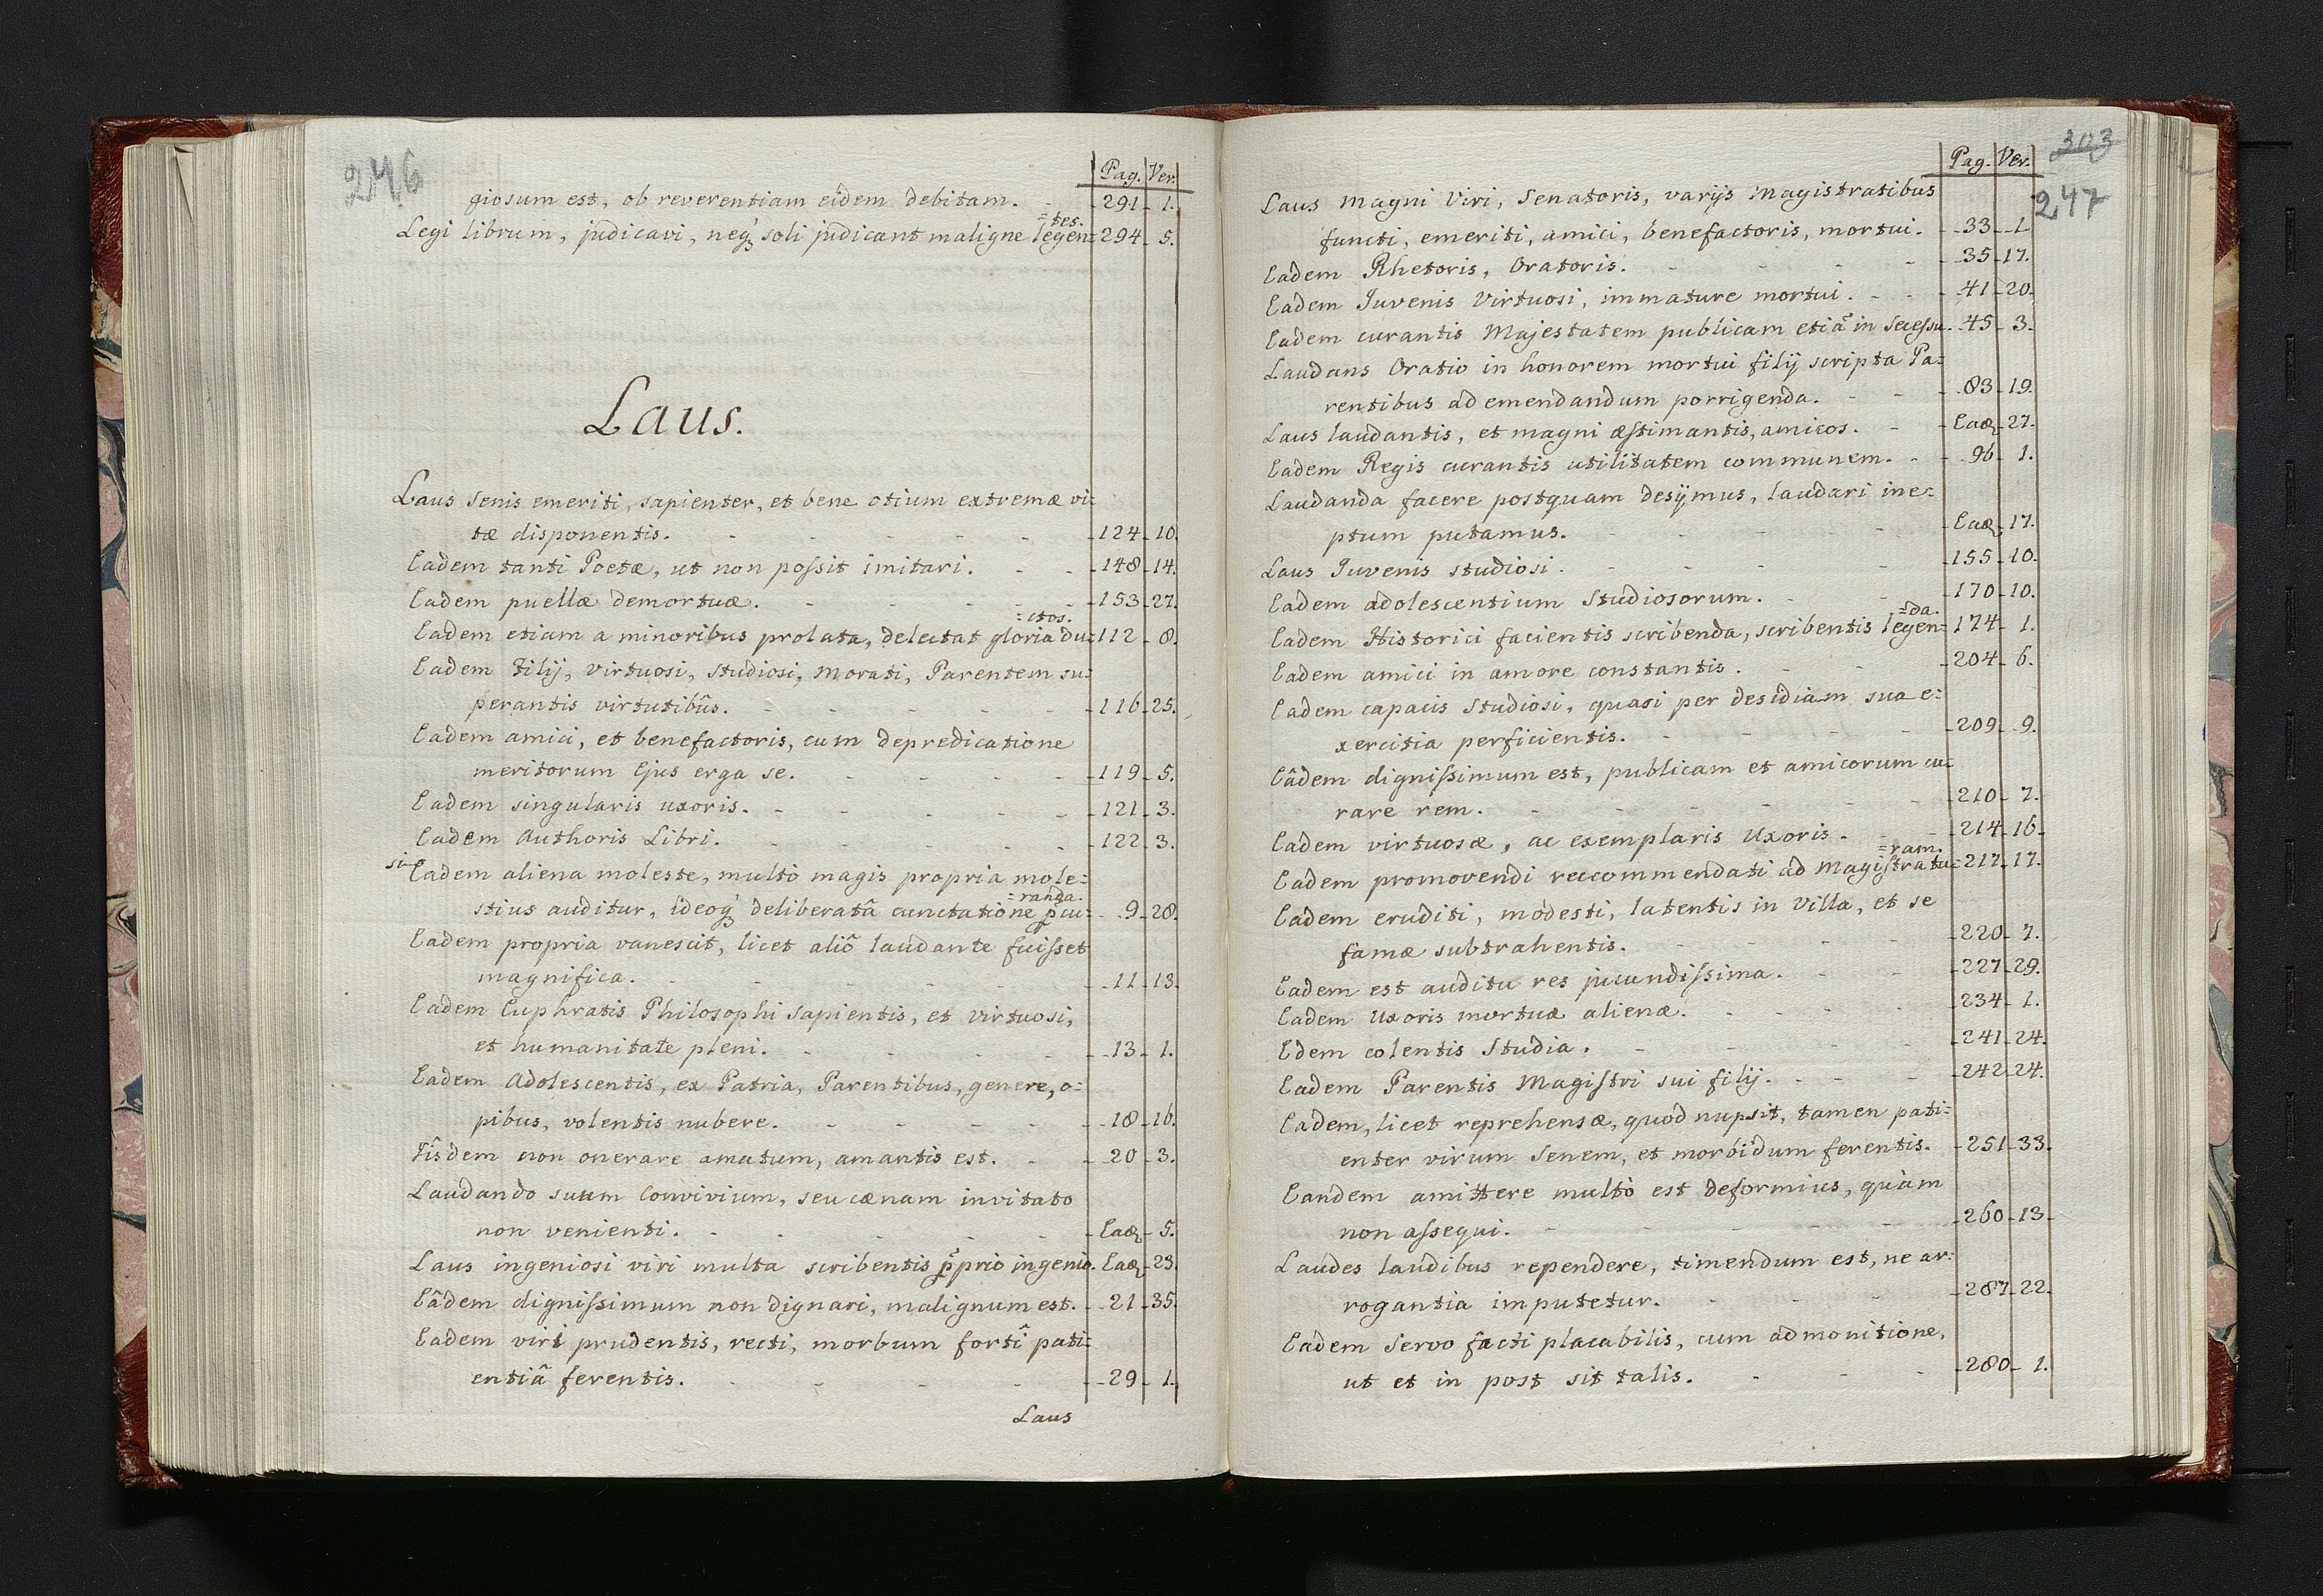 246
Pag. Ver.
giosum est, ob reverentiam eidem debitam. - 291 - 1.
=tes.
Legi librum, judicavi, neq́ʒ soli judicant maligne legen= 294 - 5.
Laus.
Laus Senis emeriti, sapienter, et bene otium extremæ vi=
tæ disponentis. - - - - - - 124 - 10.
Eadem tanti Poetæ, ut non poſsit imitari. - - - 148 - 14.
Eadem puellæ demortuæ. - - - - - 153 - 27.
=ctos.
Eadem etiam a minoribus prolata, delectat gloria du= 112 - 8.
Eadem Filij, virtuosi, Studiosi, Morati, Parentem su=
perantis virtutibûs. - - - - - - 116 - 25.
Eadem amici, et benefactoris, cum depredicatione
meritorum Ejus erga se. - - - - - 119 - 5.
Eadem singularis uxoris. - - - - - - 121 - 3.
Eadem Authoris Libri. - - - - - 122 - 3.
si Eadem aliena moleste, multò magis propria mole=
=randa.
stius auditur, ideoq́ʒ deliberatâ cunctatione p̃cu= - 9 - 28.
Eadem propria vanescit, licet aliô laudante fuiſset
magnifica. - - - - - - 11 - 13.
Eadem Euphratis Philosophi Sapientis, et virtuosi,
et humanitate pleni. - - - - - 13 - 1.
Eadem Adolescentis, ex Patria, Parentibus, genere, o=
pibus, volentis nubere. - - - - - 18 - 16.
Iîsdem non onerare amatum, amantis est. - - 20 - 3.
Laudando suum Convivium, seu cænam invitato
non venienti. - - - - - Eaȩ - 5.
Laus ingeniosi viri multa scribentis p̃prio ingenio. Eaȩ - 23.
Eâdem digniſsimum non dignari, malignum est. - 21 - 35.
Eadem viri prudentis, recti, morbum forti pati=
entiâ ferentis. - - - - - 29 - 1.
Laus
303
247
Pag. Ver.
Laus Magni Viri, Senatoris, varijs Magistratibus
functi, emeriti, amici, benefactoris, mortui. - 33 - 1.
Eadem Rhetoris, Oratoris. - - - - 35 - 17.
Eadem Iuvenis Virtuosi, immature mortui. - - 41 - 20.
Eadem curantis Majestatem publicam etiã in Seceſsu. - 45 - 3.
Laudans Oratio in honorem mortui filij scripta Pa=
rentibus ad emendandum porrigenda. - - - 83 - 19.
Laus laudantis, et magni æſtimantis, amicos. - - Eaȩ - 27.
Eadem Regis curantis utilitatem communem. - - 96 - 1.
Laudanda facere postquam desijmus, laudari ine=
ptum putamus. - - - - - Eaȩ - 17.
Laus Iuvenis studiosi. - - - - - 155 - 10.
Eadem adolescentium Studiosorum. - - - 170 - 10.
=da.
Eadem Historici facientis scribenda, scribentis legen= 174 - 1.
Eadem amici in amore constantis. - - - 204 - 6.
Eadem capacis Studiosi, quasi per desidiam sua e=
xercitia perficientis. - - - - - 209 - 9.
Eâdem digniſsimum est, publicam et amicorum cu=
rare rem. - - - - - - 210 - 7.
Eadem virtuosæ, ac exemplaris Uxoris. - - - 214 - 16.
=ram.
Eadem promovendi reccommendati ad Magiſtratu= 217 - 17.
Eadem eruditi, modesti, latentis in villa, et se
famæ subtrahentis. - - - - - 220 - 7.
Eadem est auditu res jucundiſsima. - - - 227 - 29.
Eadem Uxoris mortuæ alienæ. - - - - 234 - 1.
Edem colentis Studia. - - - - - 241 - 24.
Eadem Parentis Magiſtri sui filij. - - - 242 - 24.
Eadem, licet reprehensæ, quod nupsit, tamen pati=
enter virum Senem, et morbidum ferentis. - 251 - 33.
Eandem amittere multò est deformius, quàm
non aſsequi. - - - - - 260 - 13.
Laudes laudibus rependere, timendum est, ne ar=
rogantia imputetur. - - - - 287 - 22.
Eadem Servo facti placabilis, cum admonitione,
ut et in post sit talis. - - - 280 - 1.